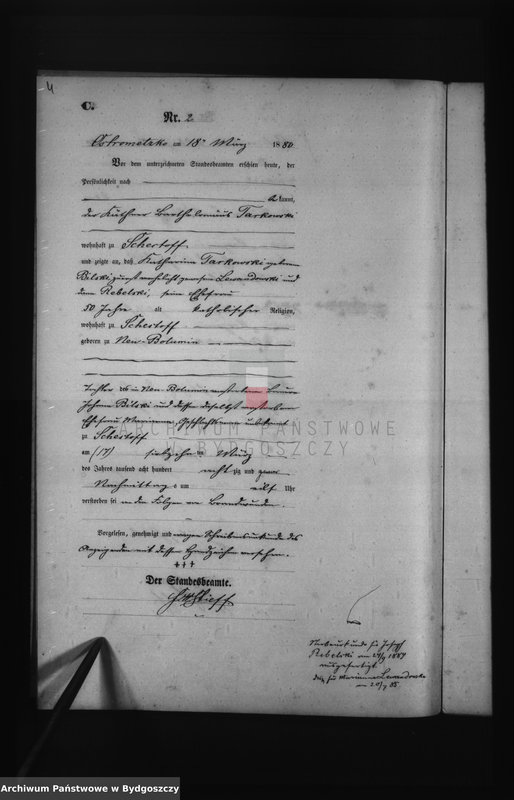 4
C.
Nr. 2
Ostrometzko am 18ten März 1880.
Vor dem unterzeichneten Standesbeamten erschien heute, der
Persönlichkeit nach
kannt,
der Käthner Bartholomäus Tarkowski
wohnhaft zu Schestoff
und zeigte an, daß Katharina Tarkowski geborene
Bilski, zuerst verehelicht gewesene Lewandowski und
dann Rebelski, seine Ehefrau
50 Jahre alt katholischer Religion,
wohnhaft zu Schestoff
geboren zu Neu-Bolumin
Tochter des in Neu-Bolumin verstorbenen
Johann Bilski und dessen daselbst verstorbenen
Ehefrau Marianna, Geschlechtsname unbekannt
zu Schestoff
am (17) siebzehn ten März
des Jahres tausend acht hundert acht zig und zwar
Nachmittag s um eilf Uhr
verstorben sei in den Folgen von Brandwunden.
Vorgelesen, genehmigt und wegen Schreibensunkunde des
Anzeigenden mit dessen Handzeichen versehen.
+ + +
Der Standesbeamte.
Sterbeurkunde für Joseph
Rebelski am
ausgefertigt
für Marianna Lewandowska
ARCHIWUM PAŃSTWOWE
W BYDGOSZCZY
Archiwum Państwowe w Bydgoszczy